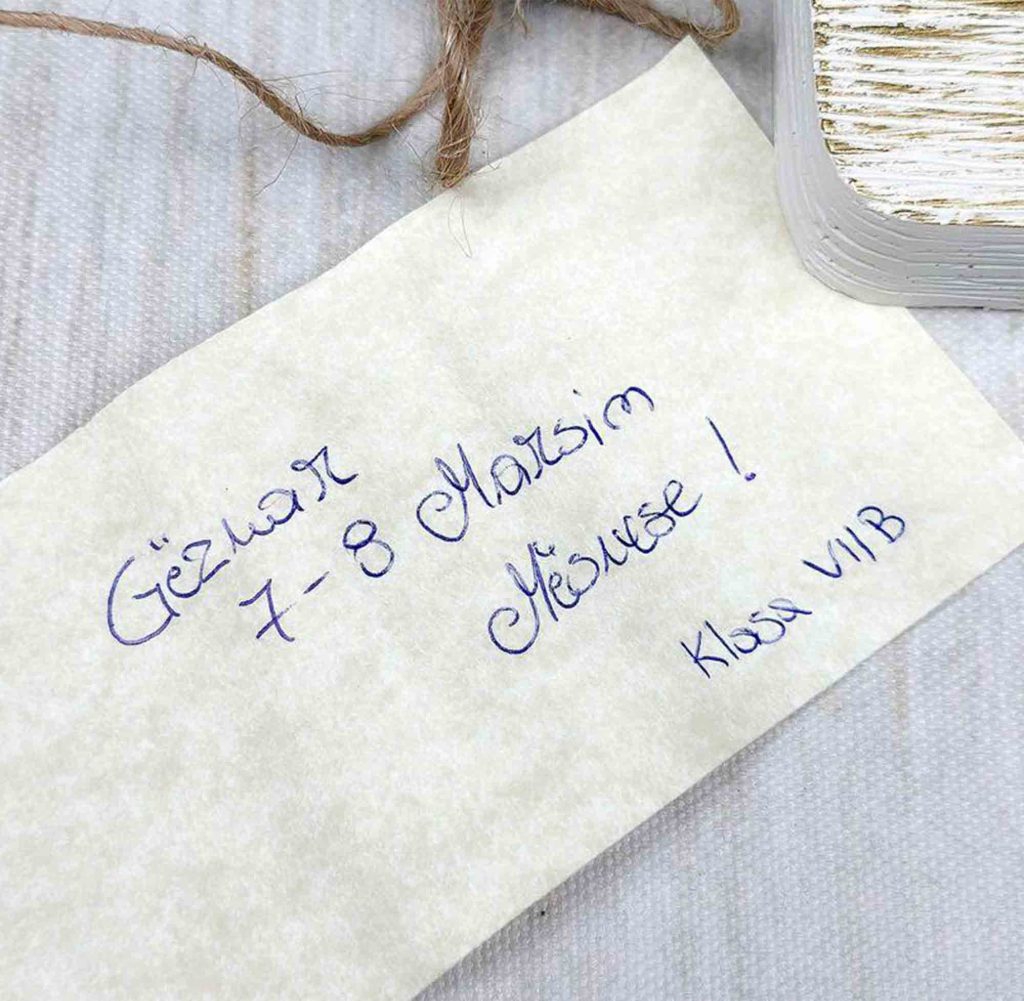 Gëzuar
7-8 Marsin
Mësuese!
Klasa VIII B